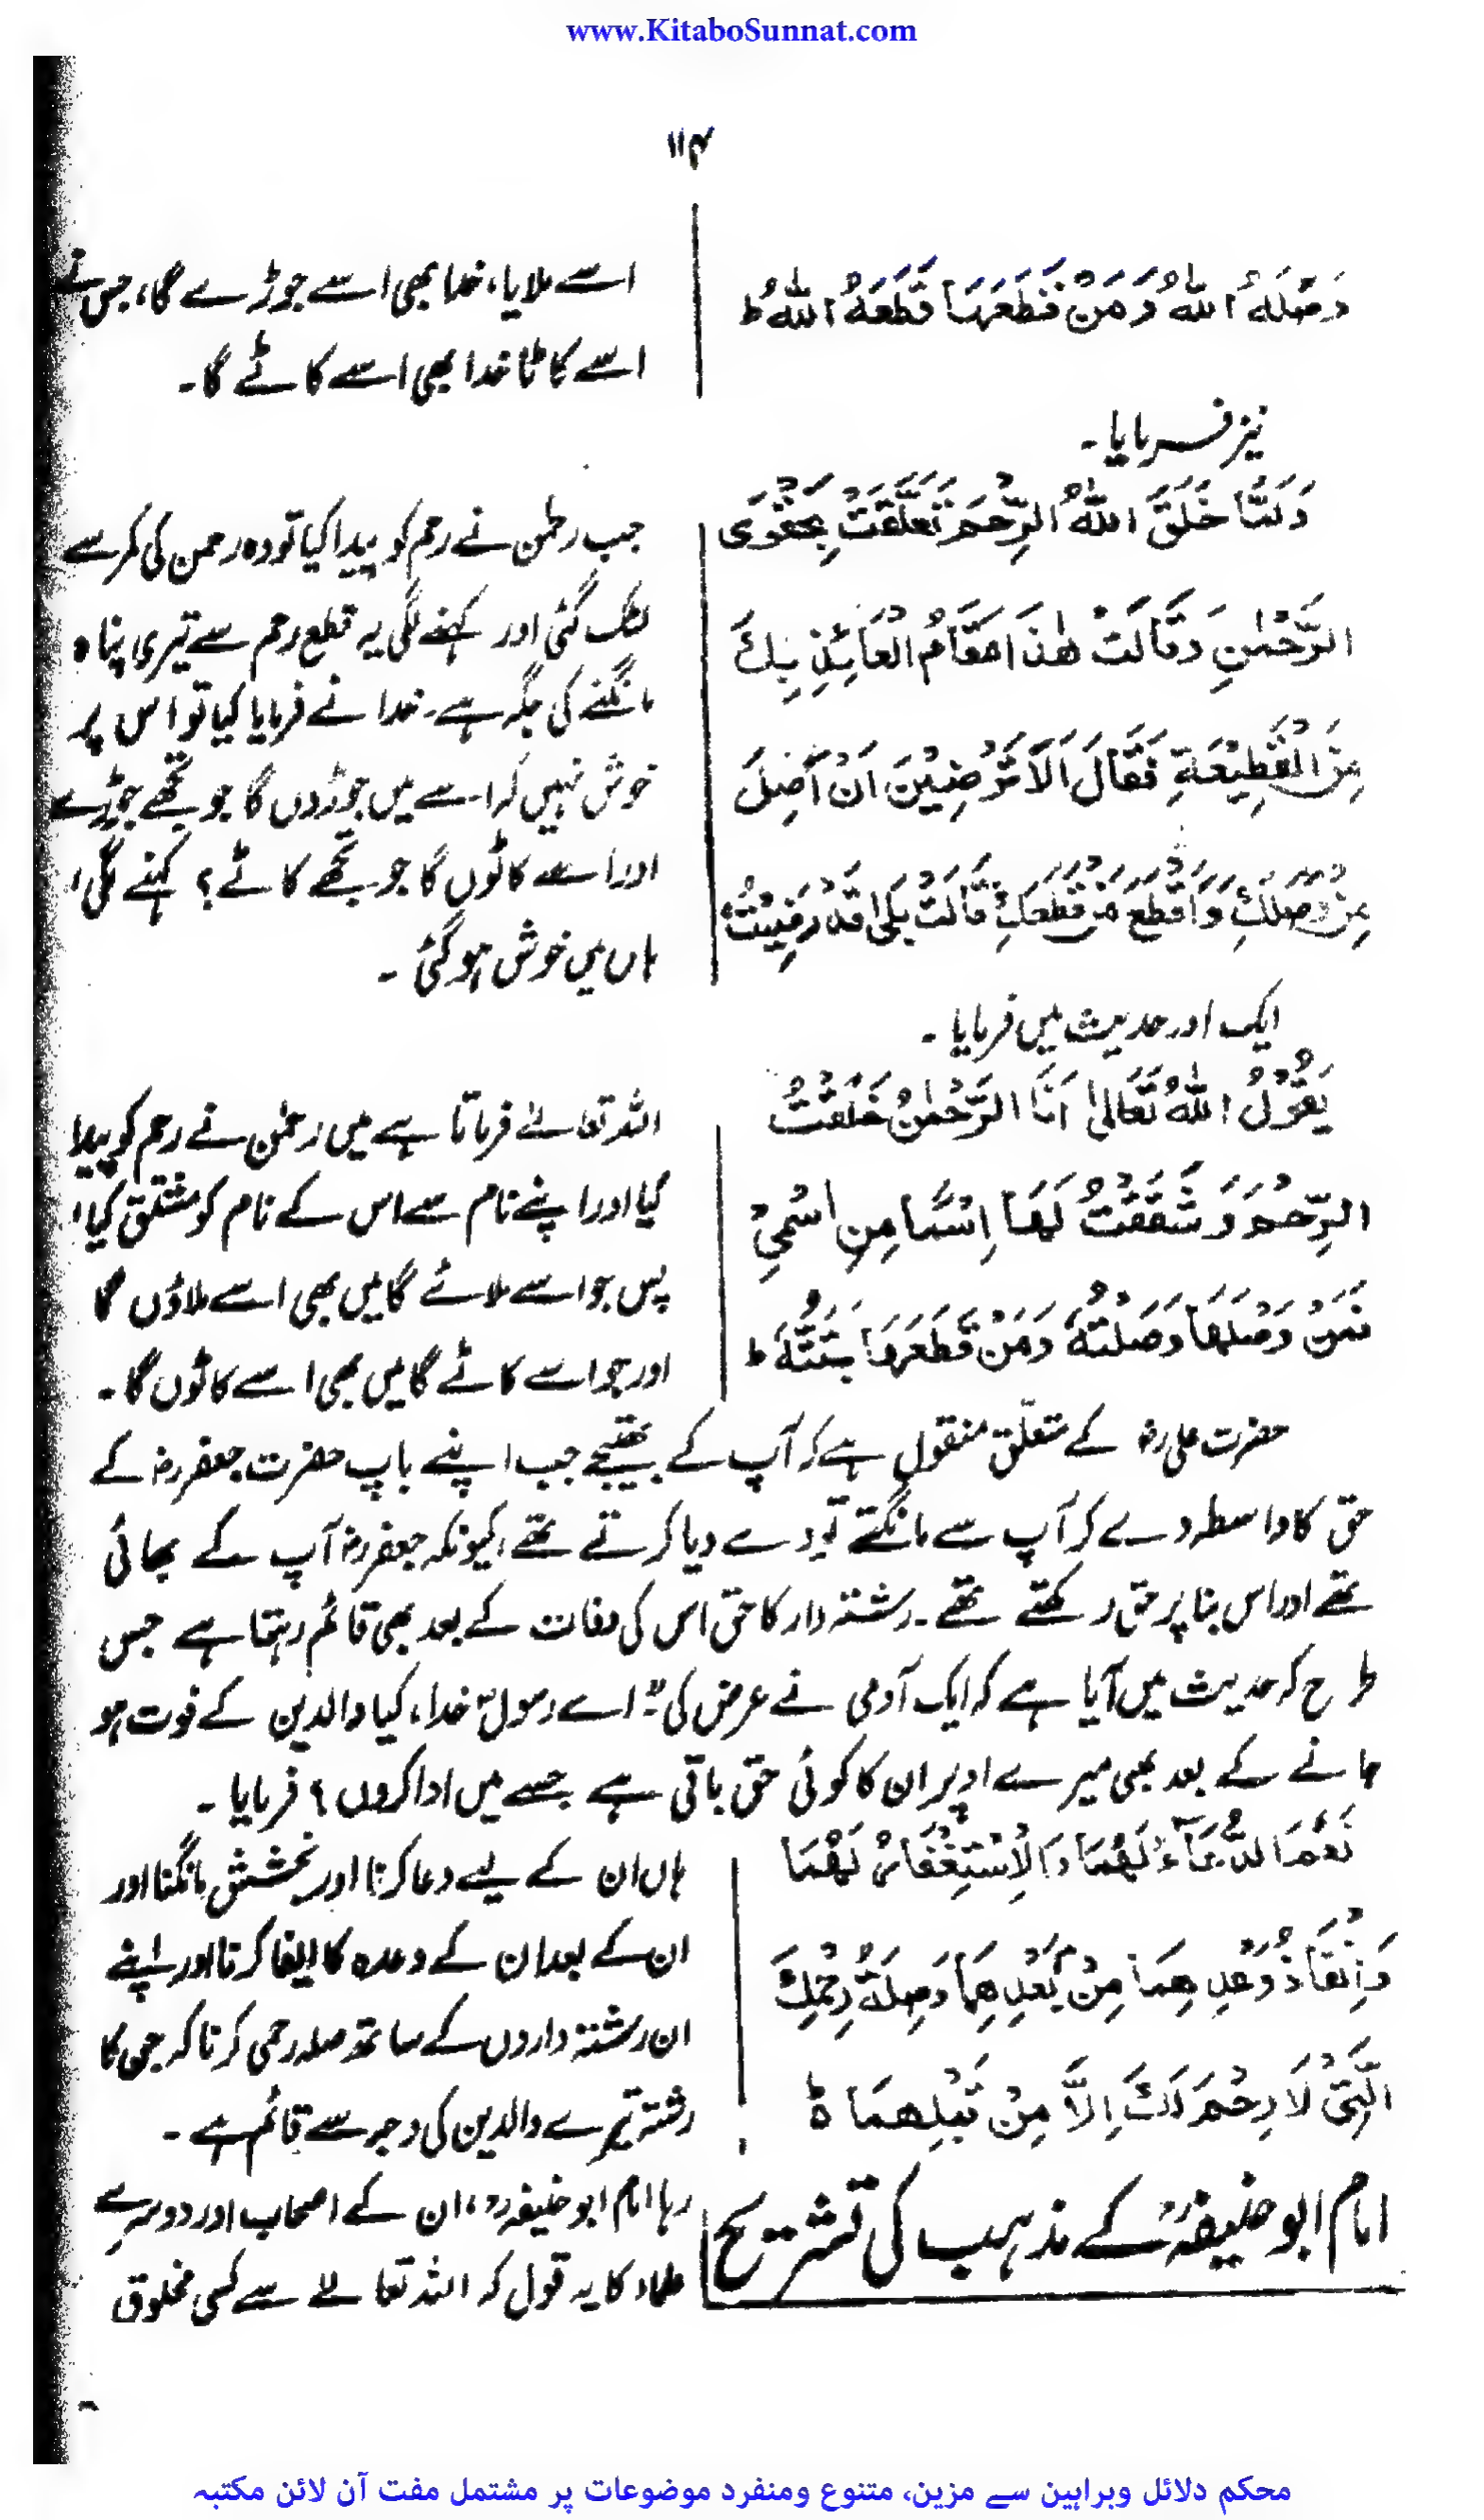 www.KitaboSunnat.com
۱۱۴
وَصَلَهُ اللهُ وَمَنْ قَطَعَهَا قَطَعَهُ اللهُ ط
اسے ملایا، خدا بھی اسے جوڑے گا، جس نے
اسے کاٹا خدا بھی اسے کاٹے گا۔
نیز فرمایا۔
وَلَمَّا خَلَقَ اللهُ الرِّحْمَ تَعَلَّقَتْ بِحَقْوَى
الرَّحْمٰنِ وَقَالَتْ هٰذَا مَقَامُ الْعَائِذِ بِكَ
مِنَ الْقَطِيْعَةِ فَقَالَ اَلَا تَرْضِيْنَ اَنْ اَصِلَ
مَنْ وَصَلَكِ وَاَقْطَعَ مَنْ قَطَعَكِ قَالَتْ بَلٰى قَدْ رَضِيْتُ
جب رحمٰن نے رحم کو پیدا کیا تو وہ رحمن کی کمر سے
لٹک گئی اور کہنے لگی یہ قطع رحم سے تیری پناہ
مانگنے کی جگہ ہے۔ خدا نے فرمایا کیا تو اس پر
خوش نہیں کہ اسے میں جوڑوں گا جو تجھے جوڑے
اور اسے کاٹوں گا جو تجھے کاٹے؟ کہنے لگی،
ہاں میں خوش ہو گئی۔
ایک اور حدیث میں فرمایا۔
يَقُوْلُ اللهُ تَعَالىٰ اَنَا الرَّحْمٰنُ خَلَقْتُ
الرِّحْمَ وَشَقَقْتُ لَهَا اِسْمًا مِنِ اسْمِيْ
فَمَنْ وَصَلَهَا وَصَلْتُهُ وَمَنْ قَطَعَهَا بَتَتُّهُ ط
اللہ تعالےٰ فرماتا ہے میں رحمٰن نے رحم کو پیدا
کیا اور اپنے نام سے اس کے نام کو مشتق کیا،
پس جو اسے ملائے گا میں بھی اسے ملاؤں گا
اور جو اسے کاٹے گا میں بھی اسے کاٹوں گا۔
حضرت علی رض کے متعلّق منقول ہے کہ آپ کے بھتیجے جب اپنے باپ حضرت جعفر رض کے
حق کا واسطہ دے کر آپ سے مانگتے تو دے دیا کرتے تھے، کیونکہ جعفر رض آپ کے بھائی
تھے اور اس بنا پر حق رکھتے تھے۔ رشتہ دار کا حق اس کی وفات کے بعد بھی قائم رہتا ہے جس
طرح کہ حدیث میں آیا ہے کہ ایک آدمی نے عرض کی: "اے رسولؐ خدا، کیا والدین کے فوت ہو
جانے کے بعد بھی میرے اوپر ان کا کوئی حق باقی ہے جسے میں ادا کروں؟ فرمایا۔
نَعَمْ اَلدُّعَاءُ لَهُمَا وَالْاِسْتِغْفَارُ لَهُمَا
وَاِنْفَاذُ وَعْدِهِمَا مِنْ بَعْدِهِمَا وَصِلَةُ رِحْمِكَ
الَّتِيْ لَا رِحْمَ لَكَ اِلَّا مِنْ قَبْلِهِمَا ط
ہاں ان کے لیے دعا کرنا اور بخشش مانگنا اور
ان کے بعد ان کے وعدہ کا ایفا کرنا اور اپنے
ان رشتہ داروں کے ساتھ صلہ رحمی کرنا کہ جن کا
رشتہ تیرے والدین کی وجہ سے قائم ہے۔
امام ابو حنیفہؒ کے مذہب کی تشریح
رہا امام ابو حنیفہ رح، ان کے اصحاب اور دوسرے
علماء کا یہ قول کہ اللہ تعالےٰ سے کسی مخلوق
محکم دلائل وبراہین سے مزین، متنوع ومنفرد موضوعات پر مشتمل مفت آن لائن مکتبہ